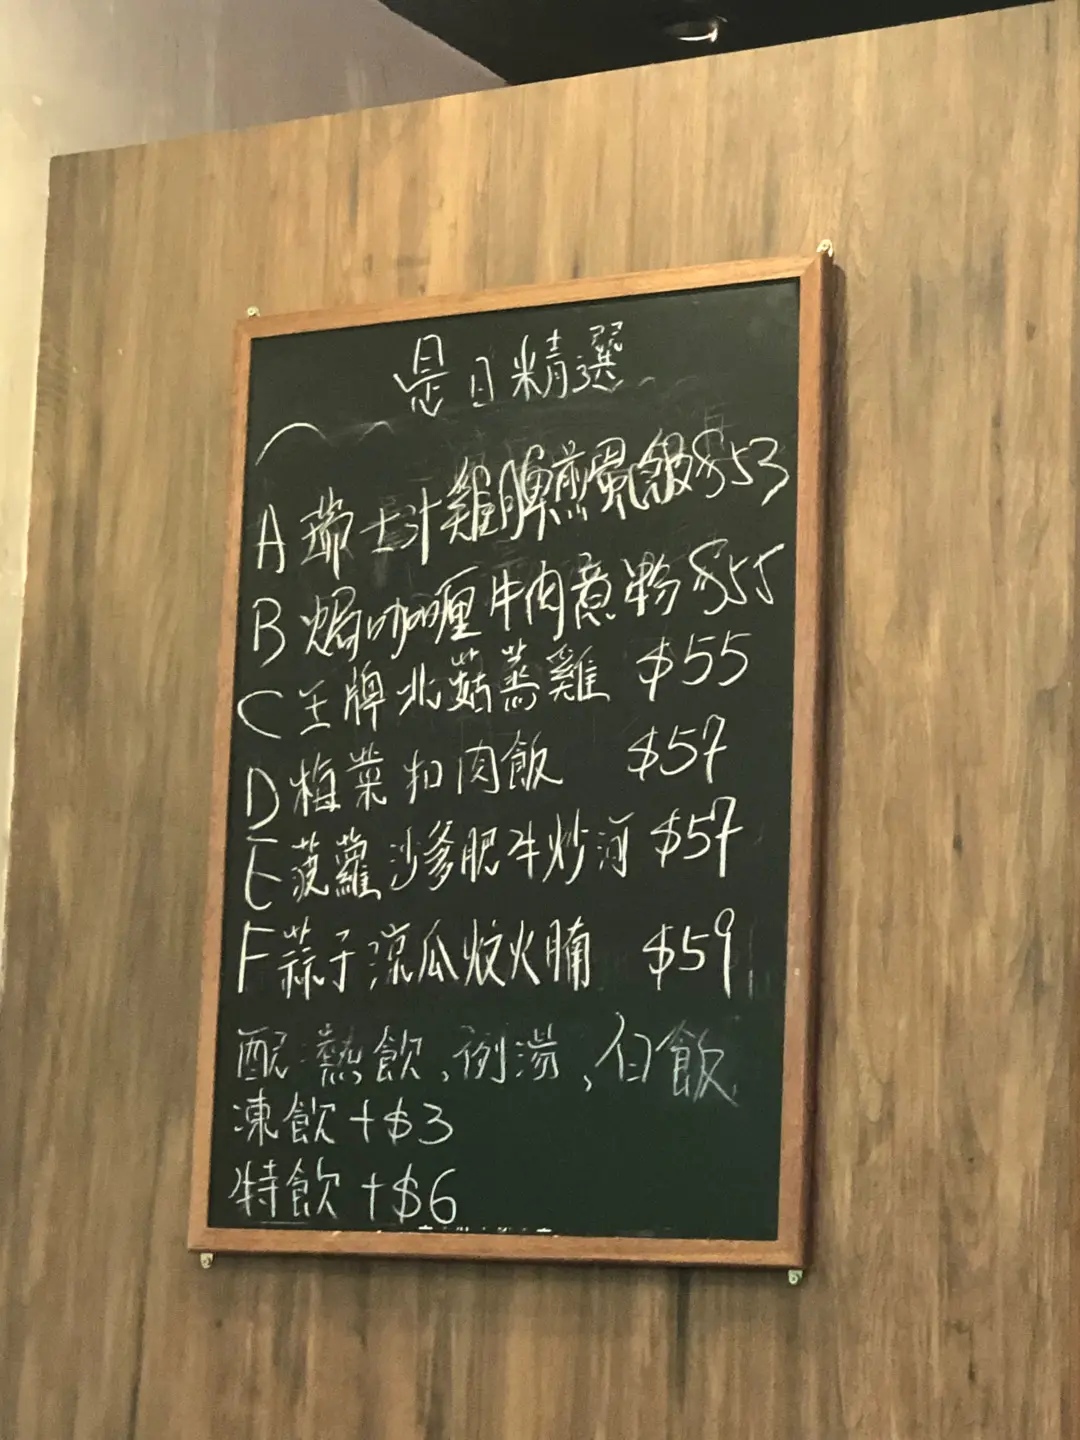 是日精選
A 瑞士汁雞脾煎蛋飯$53
B 焗咖喱牛肉意粉$55
C 王牌北菇蒸雞 $55
D 梅菜扣肉飯 $57
E 菠蘿沙爹肥牛炒河 $57
F 蒜子涼瓜炆火腩 $59
配熱飲,例湯,白飯
凍飲+$3
特飲+$6